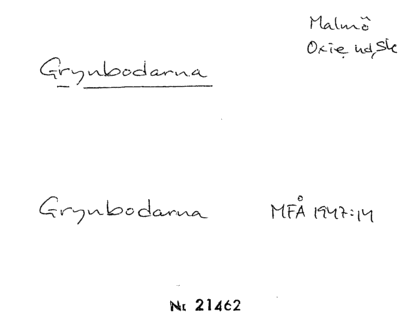 Malmö
Oxie hd, Sk
Grynbodarna
Grynbodarna MFÅ 1947:14
Nr 21462